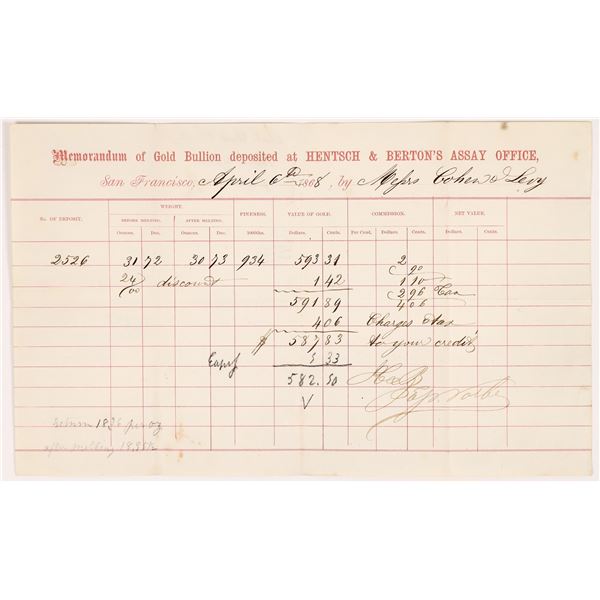 Memorandum of Gold Bullion deposited at HENTSCH & BERTON'S ASSAY OFFICE,
San Francisco, April 6th 1868, by Messrs Cohen & Levy
No. OF DEPOSIT. WEIGHT. FINENESS. VALUE OF GOLD. COMMISSION. NET VALUE.
BEFORE MELTING. AFTER MELTING.
Ounces. Dec. Ounces. Dec. 1000ths. Dollars. Cents. Per Cent. Dollars. Cents. Dollars. Cents.
2526 31 72 30 73 934 593 31 2
90
24/00 discount 1 42 1 10
591 89 2 96 Tax
4 06 4 06
Charges & tax
$ 587 83 to your credit,
5 33
582.50 H & B
V
return 18,36 per oz
after melting 18,95½